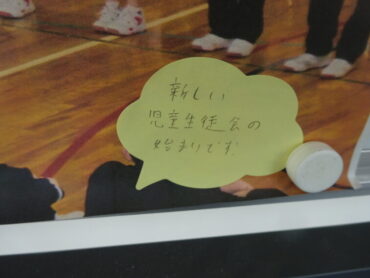 新しい
児童生徒会の
始まりです。